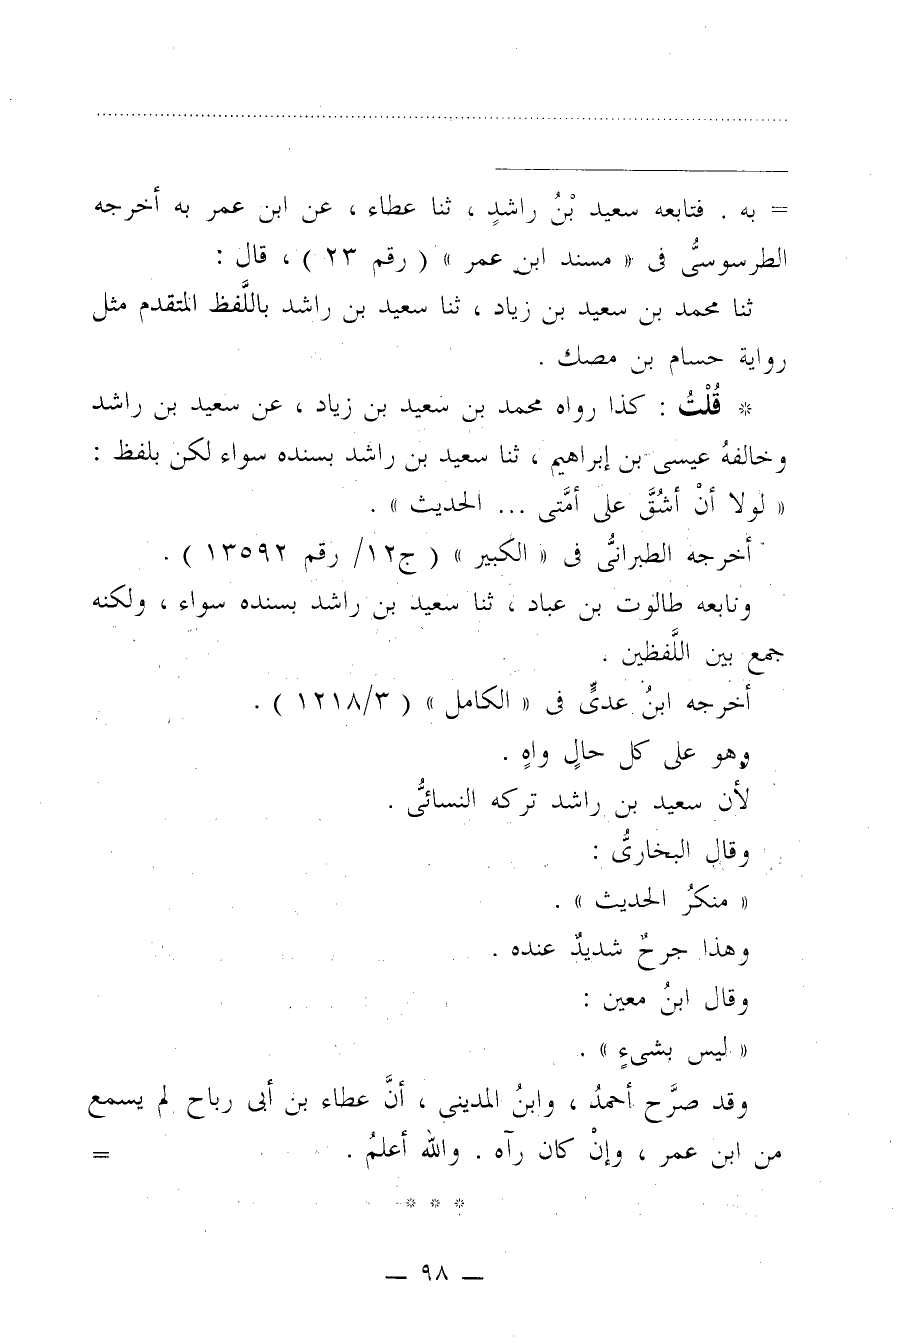 = به . فتابعه سعيد بْنُ راشدٍ ، ثنا عطاء ، عن ابن عمر به أخرجه
الطرسوسىُّ فى « مسند ابن عمر » ( رقم ٢٣ ) ، قال :
ثنا محمد بن سعيد بن زياد ، ثنا سعيد بن راشد باللَّفظ المتقدم مثل
رواية حسام بن مصك .
* قُلْتُ : كذا رواه محمد بن سعيد بن زياد ، عن سعيد بن راشد
وخالفهُ عيسى بن إبراهيم ، ثنا سعيد بن راشد بسنده سواء لكن بلفظ :
« لولا أنْ أشُقَّ على أمَّتى ... الحديث » .
أخرجه الطبرانىُّ فى « الكبير » ( ج١٢/ رقم ١٣٥٩٢ ) .
وتابعه طالوت بن عباد ، ثنا سعيد بن راشد بسنده سواء ، ولكنه
جمع بين اللَّفظين .
أخرجه ابنُ عدىٍّ فى « الكامل » ( ١٢١٨/٣ ) .
وهو على كل حالٍ واهٍ .
لأن سعيد بن راشد تركه النسائىُّ .
وقال البخارىُّ :
« منكرُ الحديث » .
وهذا جرحٌ شديدٌ عنده .
وقال ابنُ معين :
« ليس بشىءٍ » .
وقد صرَّح أحمدُ ، وابنُ المدينى ، أنَّ عطاء بن أبى رباح لم يسمع
من ابن عمر ، وإنْ كان رآه . والله أعلمُ . =
* * *
— ٩٨ —